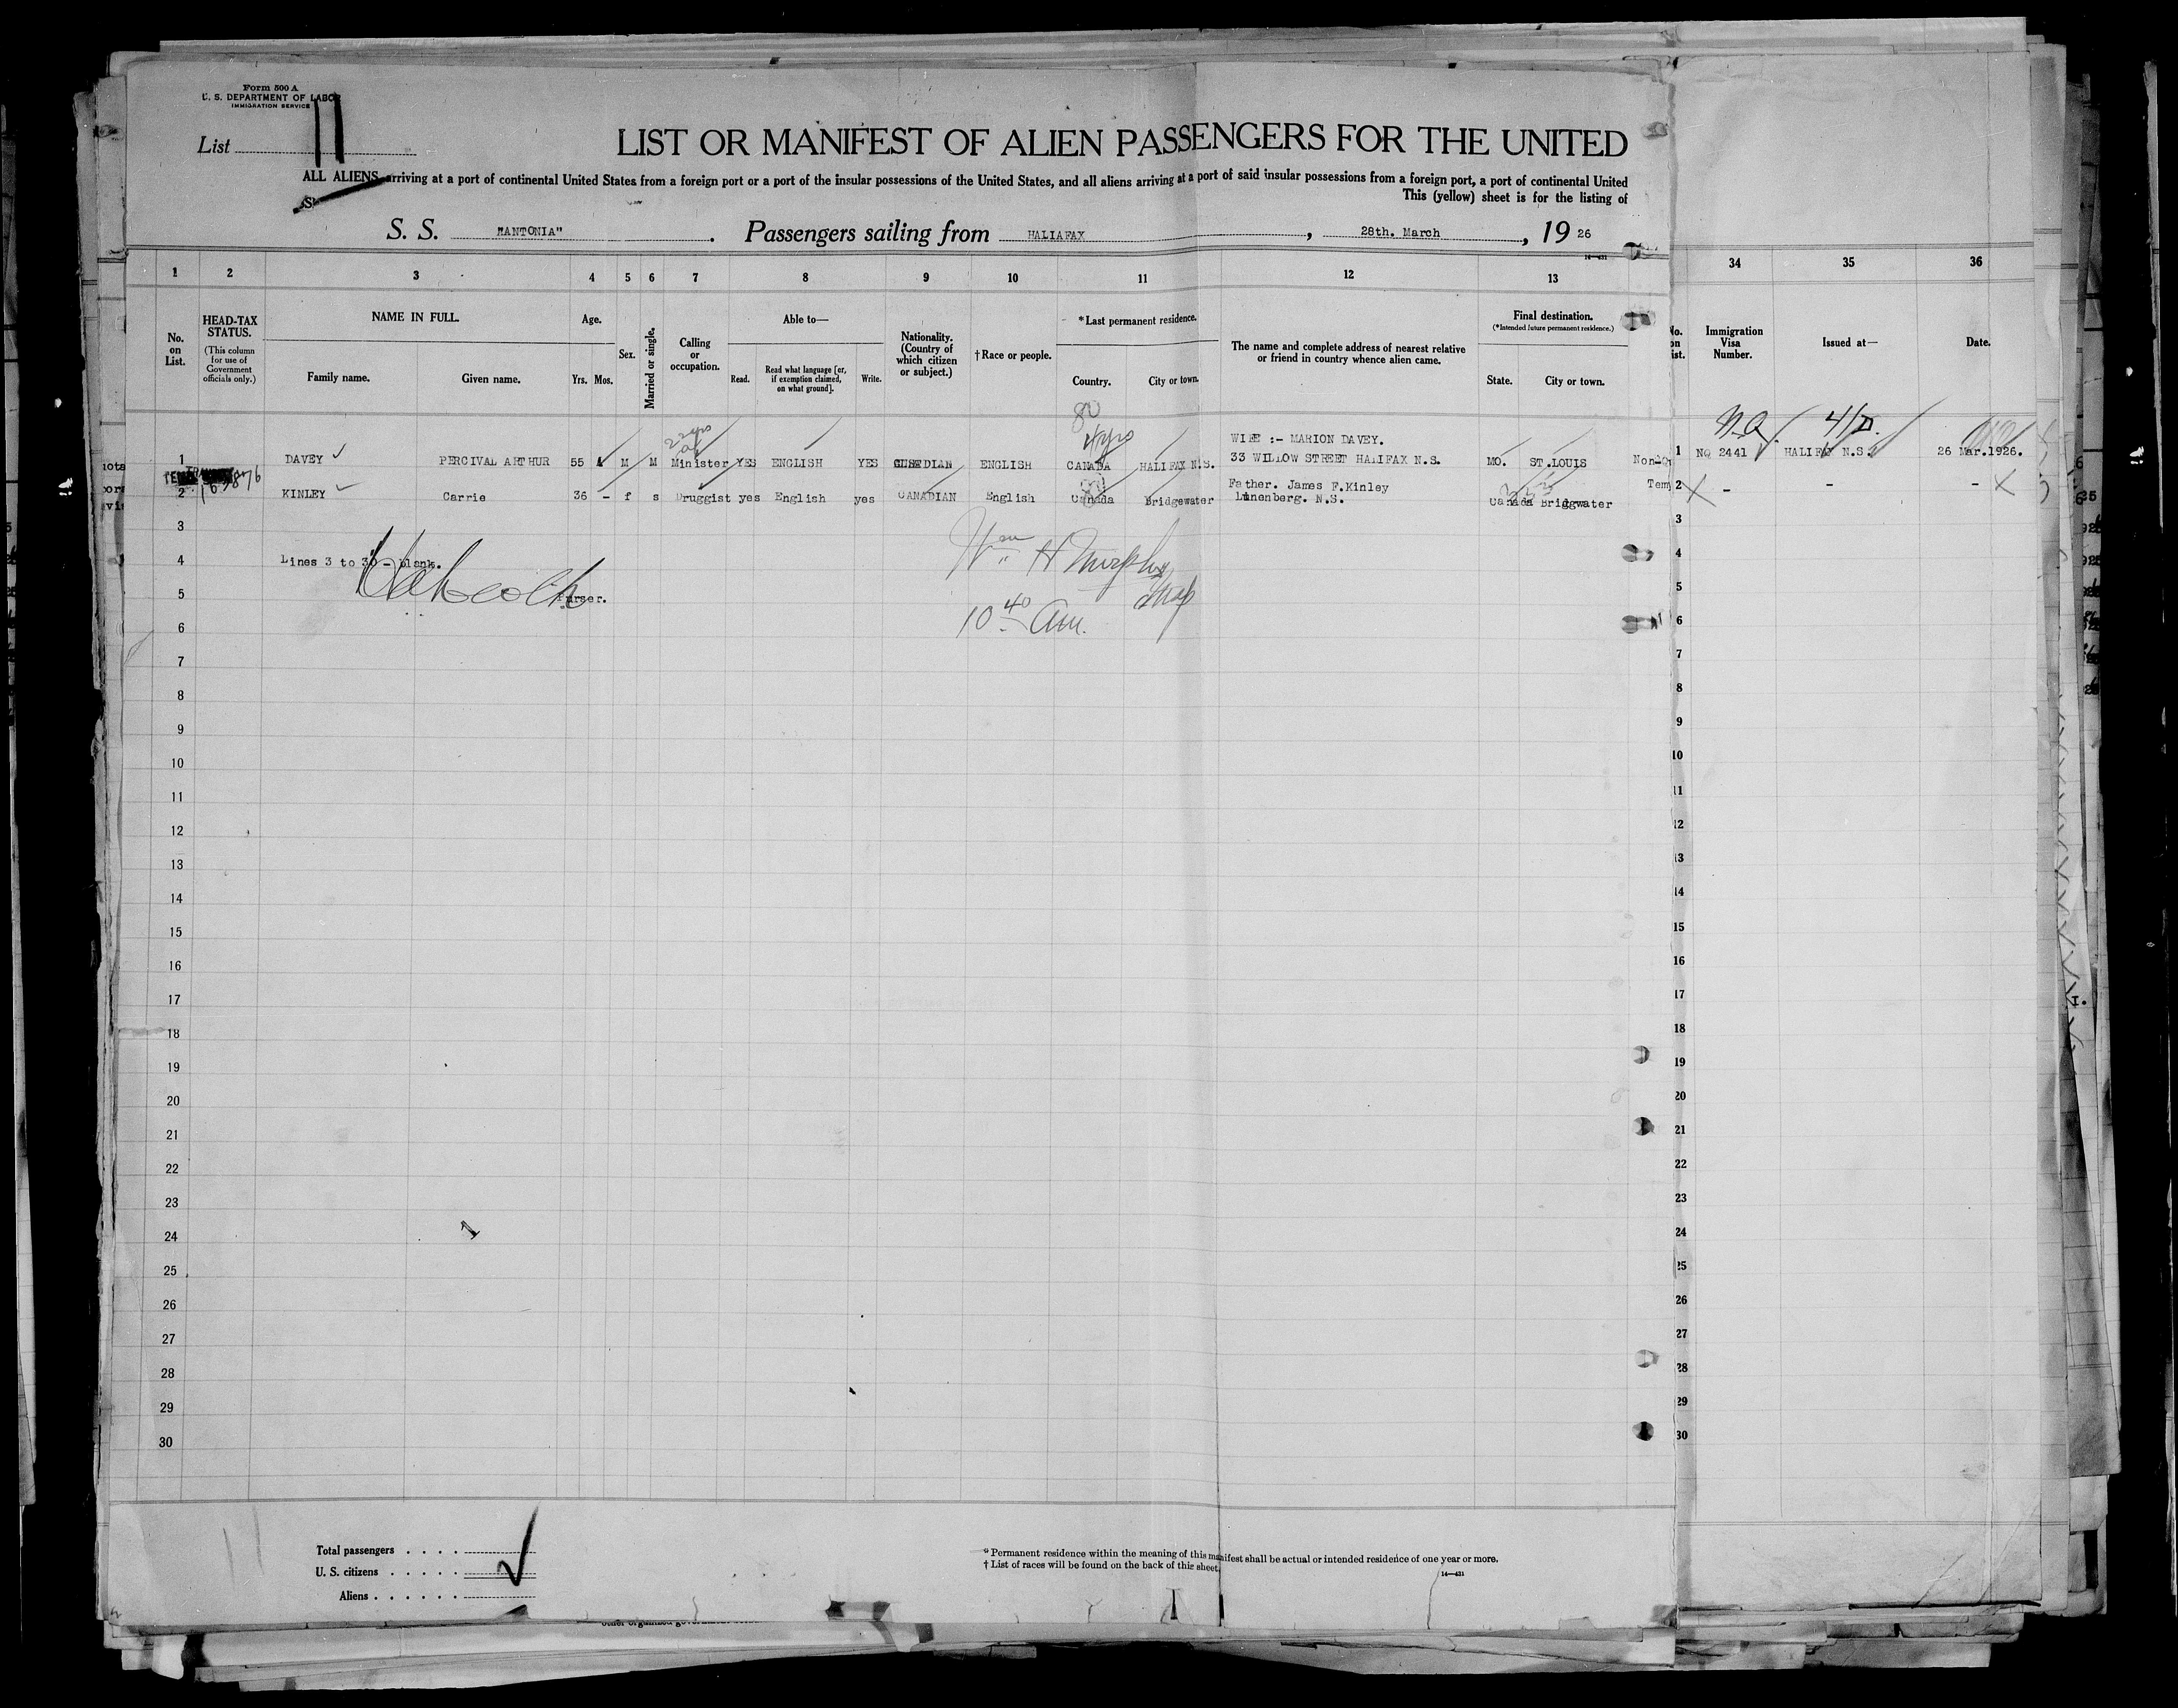 Form 500 A
U. S. DEPARTMENT OF LABOR
IMMIGRATION SERVICE
List 11
LIST OR MANIFEST OF ALIEN PASSENGERS FOR THE UNITED
ALL ALIENS arriving at a port of continental United States from a foreign port or a port of the insular possessions of the United States, and all aliens arriving at a port of said insular possessions from a foreign port, a port of continental United
This (yellow) sheet is for the listing of
S. S. "ANTONIA" . Passengers sailing from HALIAFAX , 28th. March , 19 26
14—431
1 2 3 4 5 6 7 8 9 10 11 12 13 34 35 36
No. on List.
HEAD-TAX STATUS.
(This column for use of Government officials only.)
NAME IN FULL.
Family name. Given name.
Age.
Yrs. Mos.
Sex.
Married or single.
Calling or occupation.
Able to—
Read. Read what language [or, if exemption claimed, on what ground]. Write.
Nationality. (Country of which citizen or subject.)
†Race or people.
*Last permanent residence.
Country. City or town.
The name and complete address of nearest relative or friend in country whence alien came.
Final destination.
(*Intended future permanent residence.)
State. City or town.
No. on List.
Immigration Visa Number.
Issued at—
Date.
80
4yrs
N.Q. 4/D.
WIFE :- MARION DAVEY.
1 DAVEY PERCIVAL ARTHUR 55 M M Minister YES ENGLISH YES ENGLISH CANADA HALIFAX N.S. 33 WILLOW STREET HALIFAX N.S. MO. ST.LOUIS Non-Q 1 NQ 2441 HALIFAX N.S. 26 Mar.1926.
Father. James F.Kinley
2 KINLEY Carrie 36 - f s Druggist yes English yes CANADIAN English Canada Bridgewater Lunenberg. N.S. Canada Bridgwater Tem 2 - - -
3 3
4 Lines 3 to 30 - blank. Wm H Murphy 4
5 Purser. 5
10 40 am.
6 6
7 7
8 8
9 9
10 10
11 11
12 12
13 13
14 14
15 15
16 16
17 17
18 18
19 19
20 20
21 21
22 22
23 23
24 24
25 25
26 26
27 27
28 28
29 29
30 30
Total passengers . . . .
U. S. citizens . . . . .
Aliens . . . . . .
* Permanent residence within the meaning of this manifest shall be actual or intended residence of one year or more.
† List of races will be found on the back of this sheet.
14—431